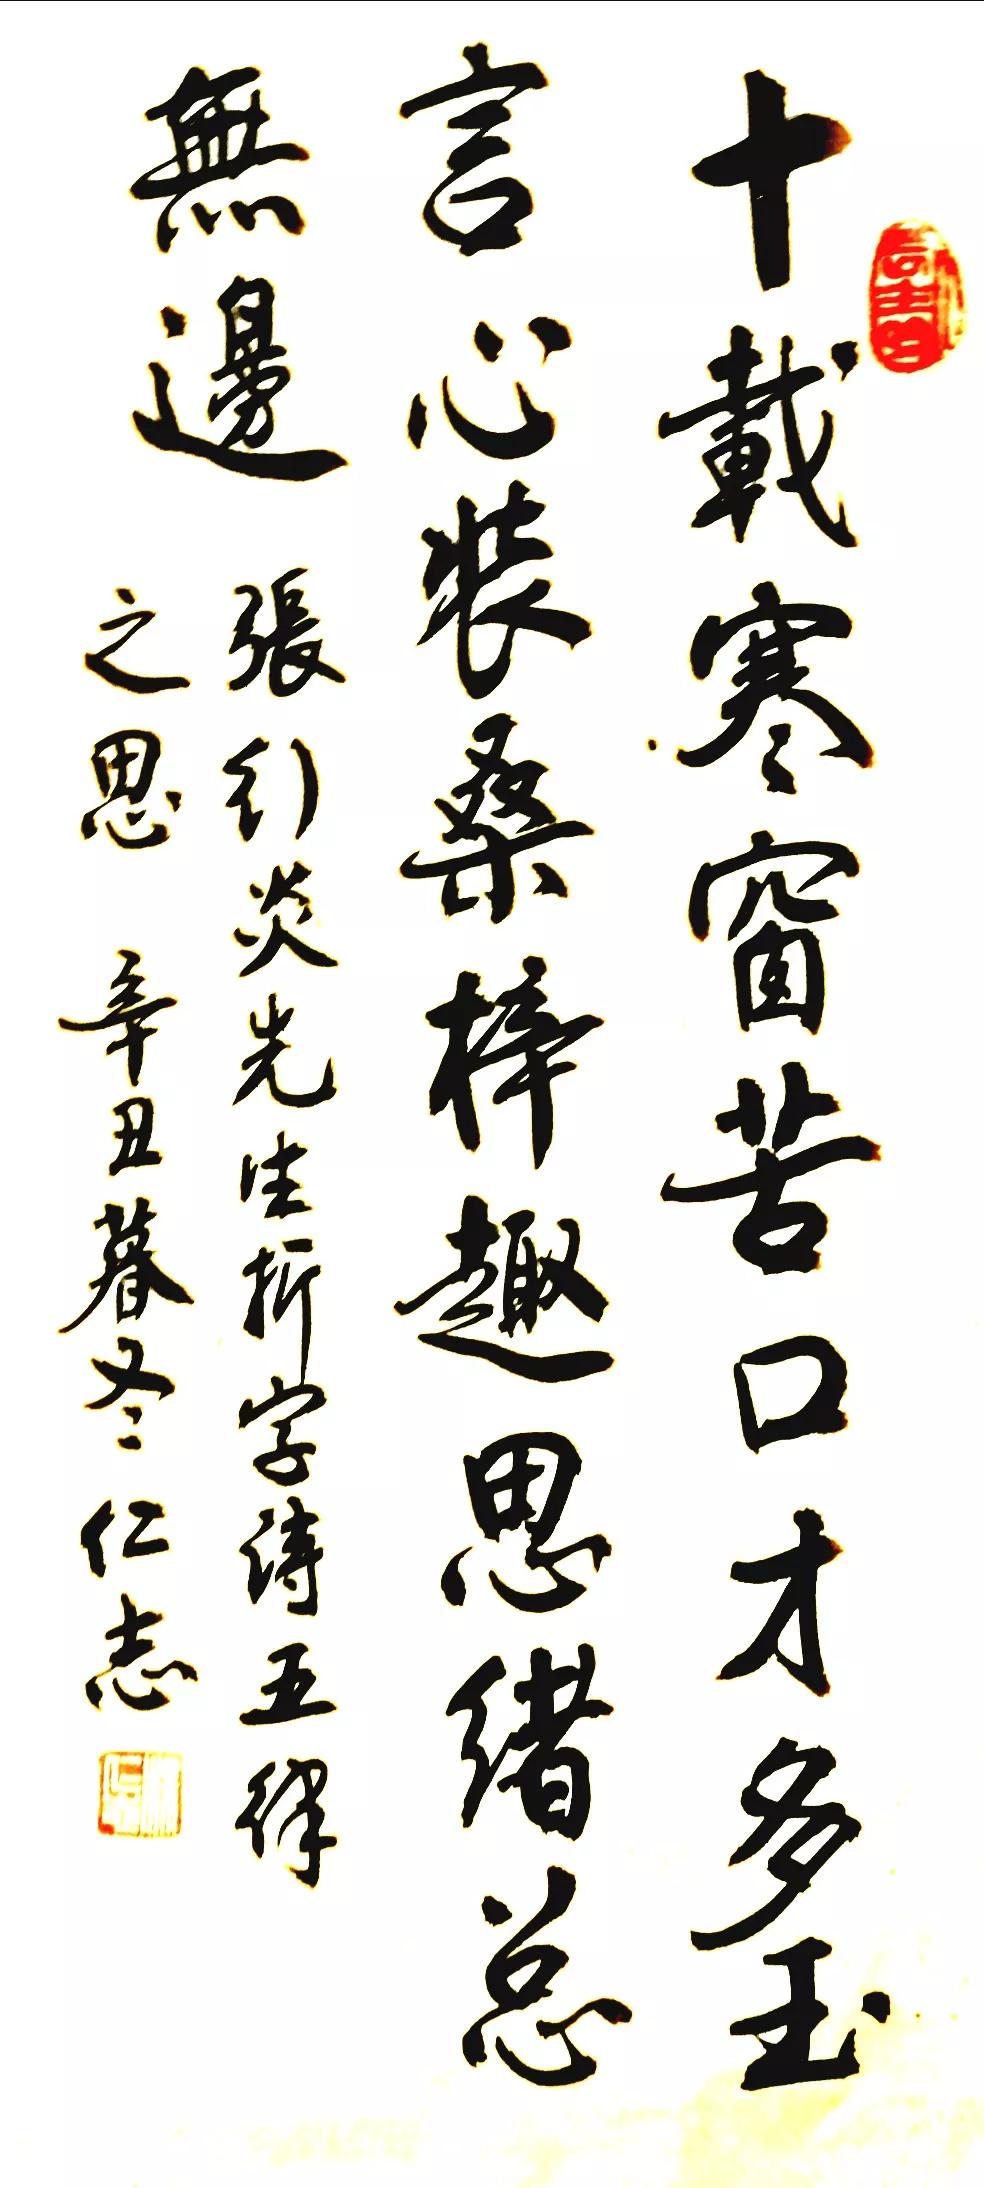 十載寒窗苦口才多玉
言心裝桑梓趣思緒总
無邊
張引炎先生折字詩五律
之思 辛丑暮冬仁志